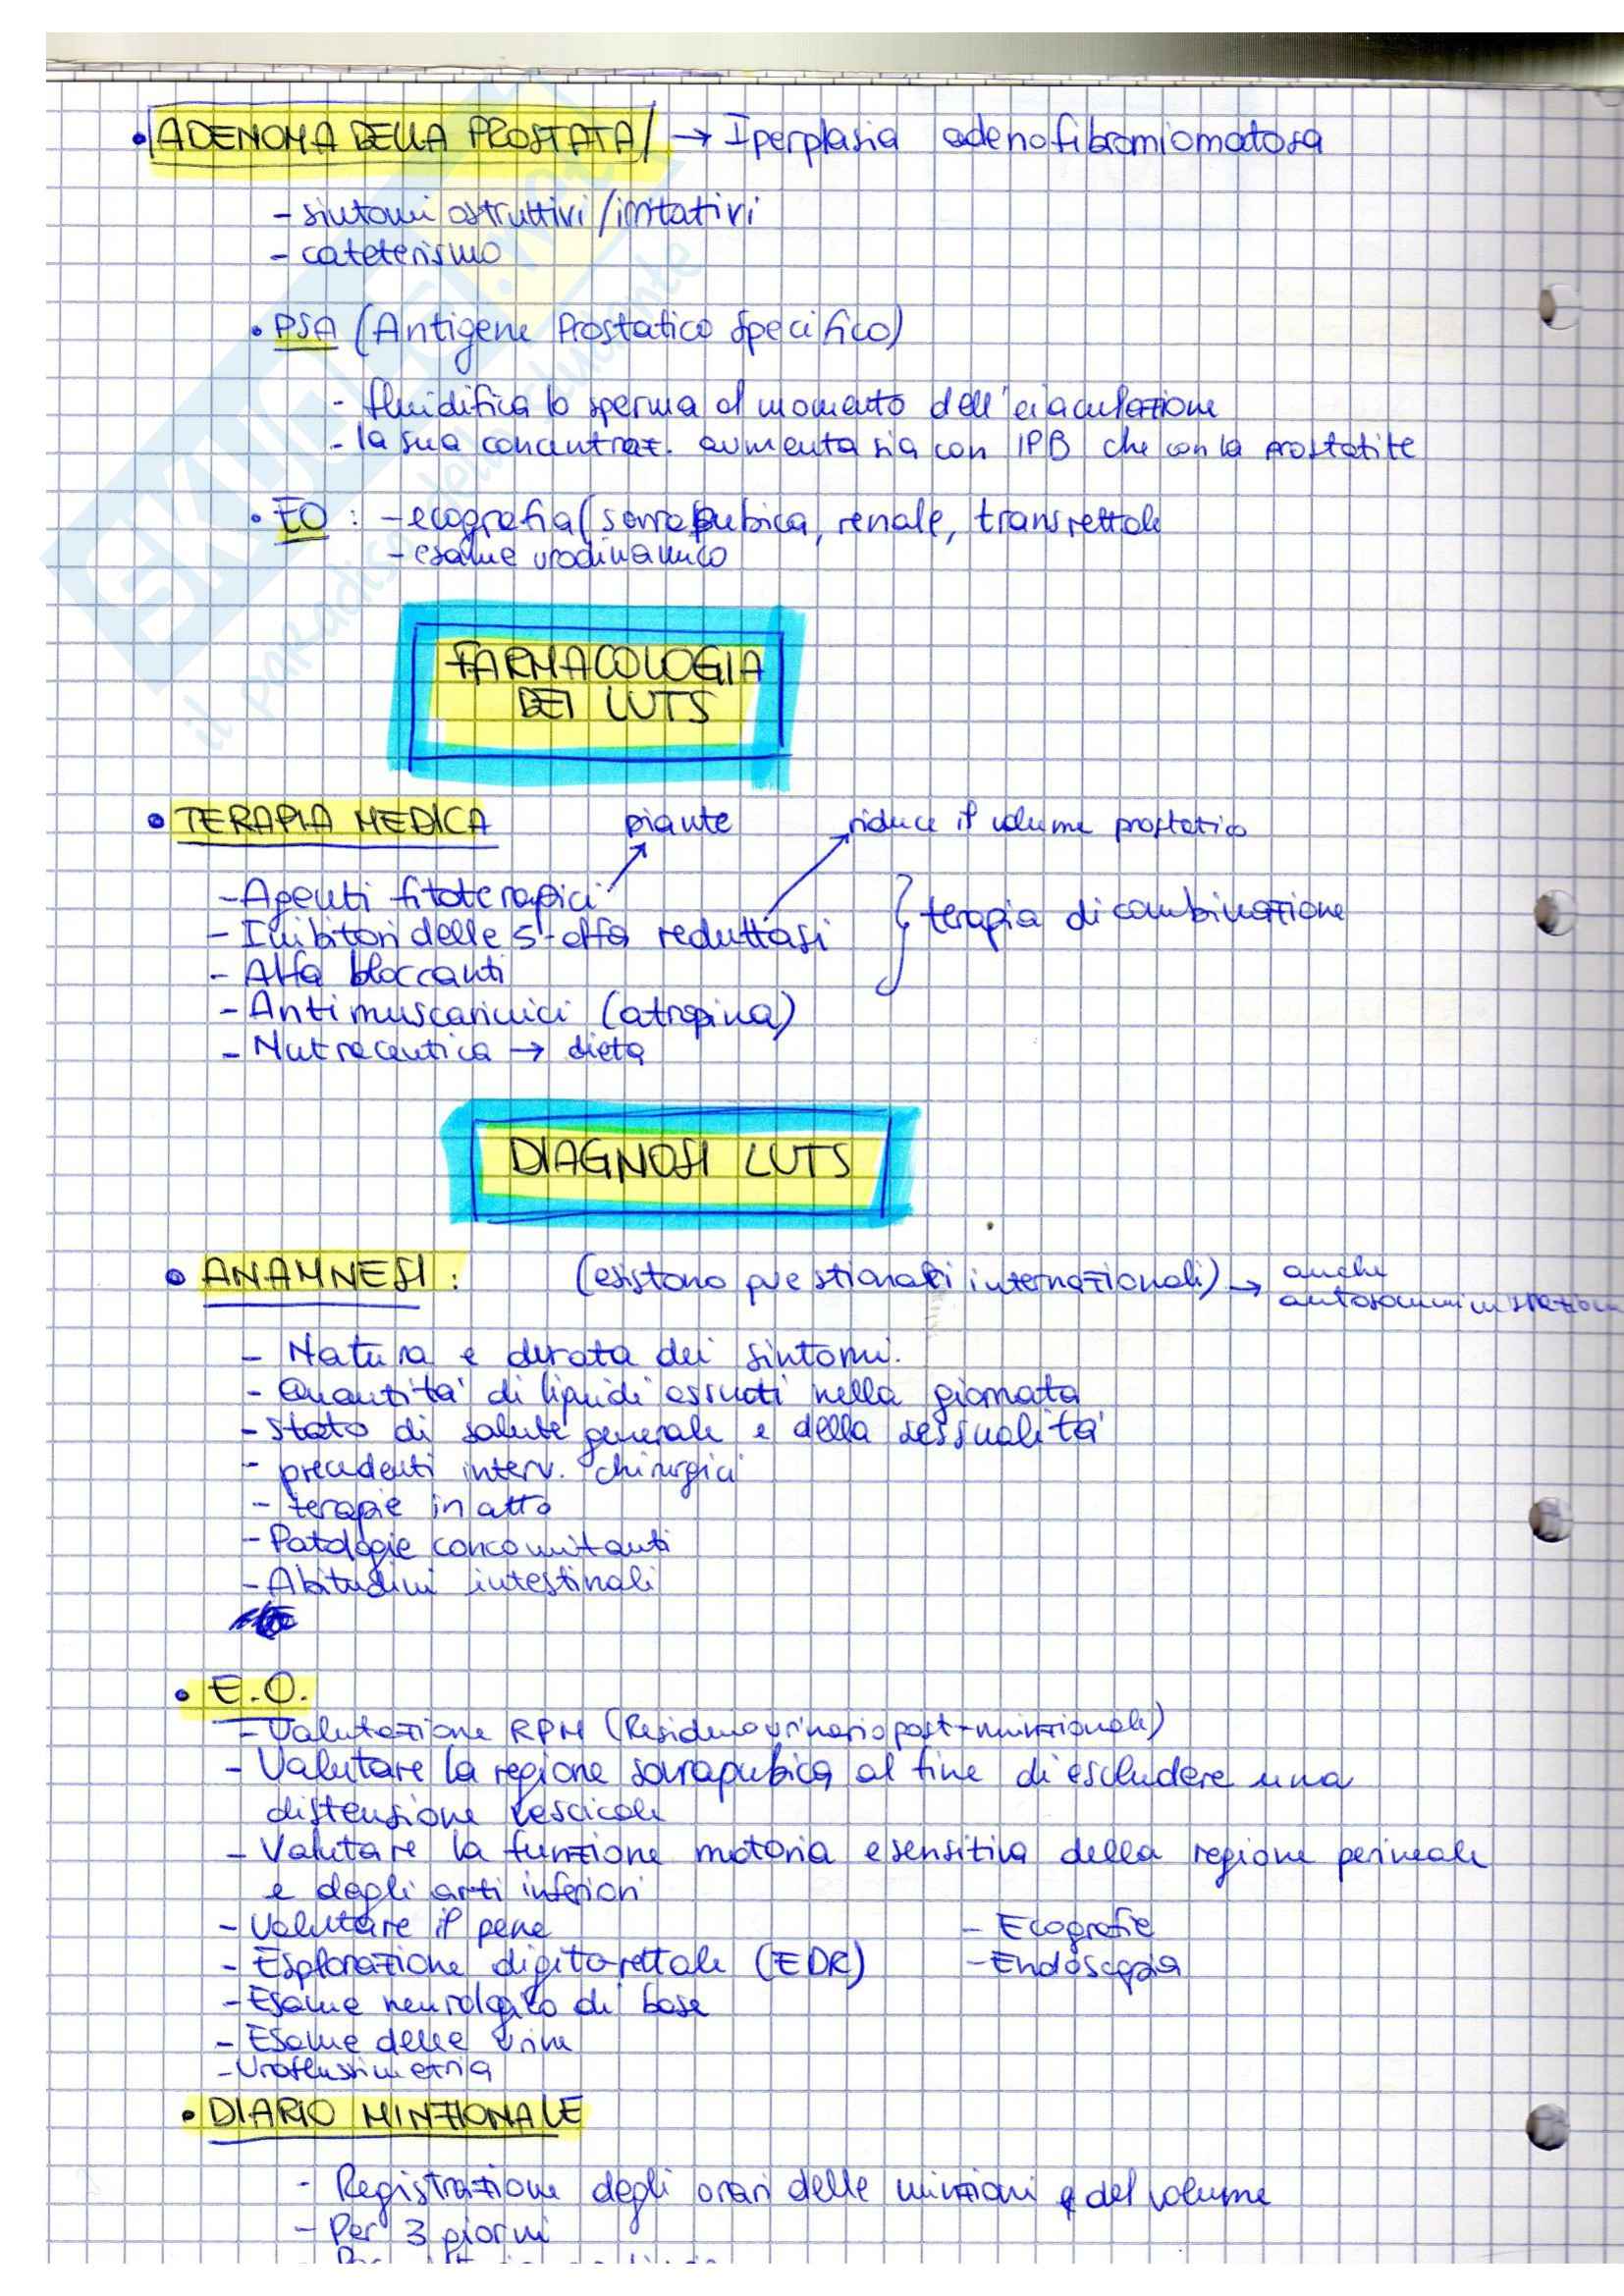 • ADENOMA DELLA PROSTATA → Iperplasia adenofibromiomatosa
- sintomi ostruttivi/irritativi
- cateterismo
• PSA (Antigene Prostatico Specifico)
- fluidifica lo sperma al momento dell'eiaculazione
- la sua concentraz. aumenta sia con IPB che con la prostatite
• EO : - ecografia (sovrapubica, renale, transrettale
- esame urodinamico
SKUOLA.net
il paradiso dello studente
FARMACOLOGIA
DEI LUTS
• TERAPIA MEDICA
piante
riduce il volume prostatico
- Agenti fitoterapici
- Inibitori delle 5-alfa reduttasi
} terapia di combinazione
- Alfa bloccanti
- Antimuscarinici (atropina)
- Nutraceutica → dieta
DIAGNOSI LUTS
• ANAMNESI : (esistono questionari internazionali) → anche
- Natura e durata dei sintomi.
- Quantità di liquidi assunti nella giornata
- Stato di salute generale e della sessualità
- precedenti interv. chirurgici
- terapie in atto
- Patologie concomitanti
- Abitudini intestinali
• E.O.
- Valutazione RPM (Residuo urinario post-minzionale)
- Valutare la regione sovrapubica al fine di escludere una
distensione vescicale
- Valutare la funzione motoria e sensitiva della regione perineale
e degli arti inferiori
- Valutare il pene - Ecografie
- Esplorazione digito-rettale (EDR) - Endoscopia
- Esame neurologico di base
- Esame delle urine
- Uroflussimetria
• DIARIO MINZIONALE
- Registrazione degli orari delle minzioni e del volume
- Per 3 giorni